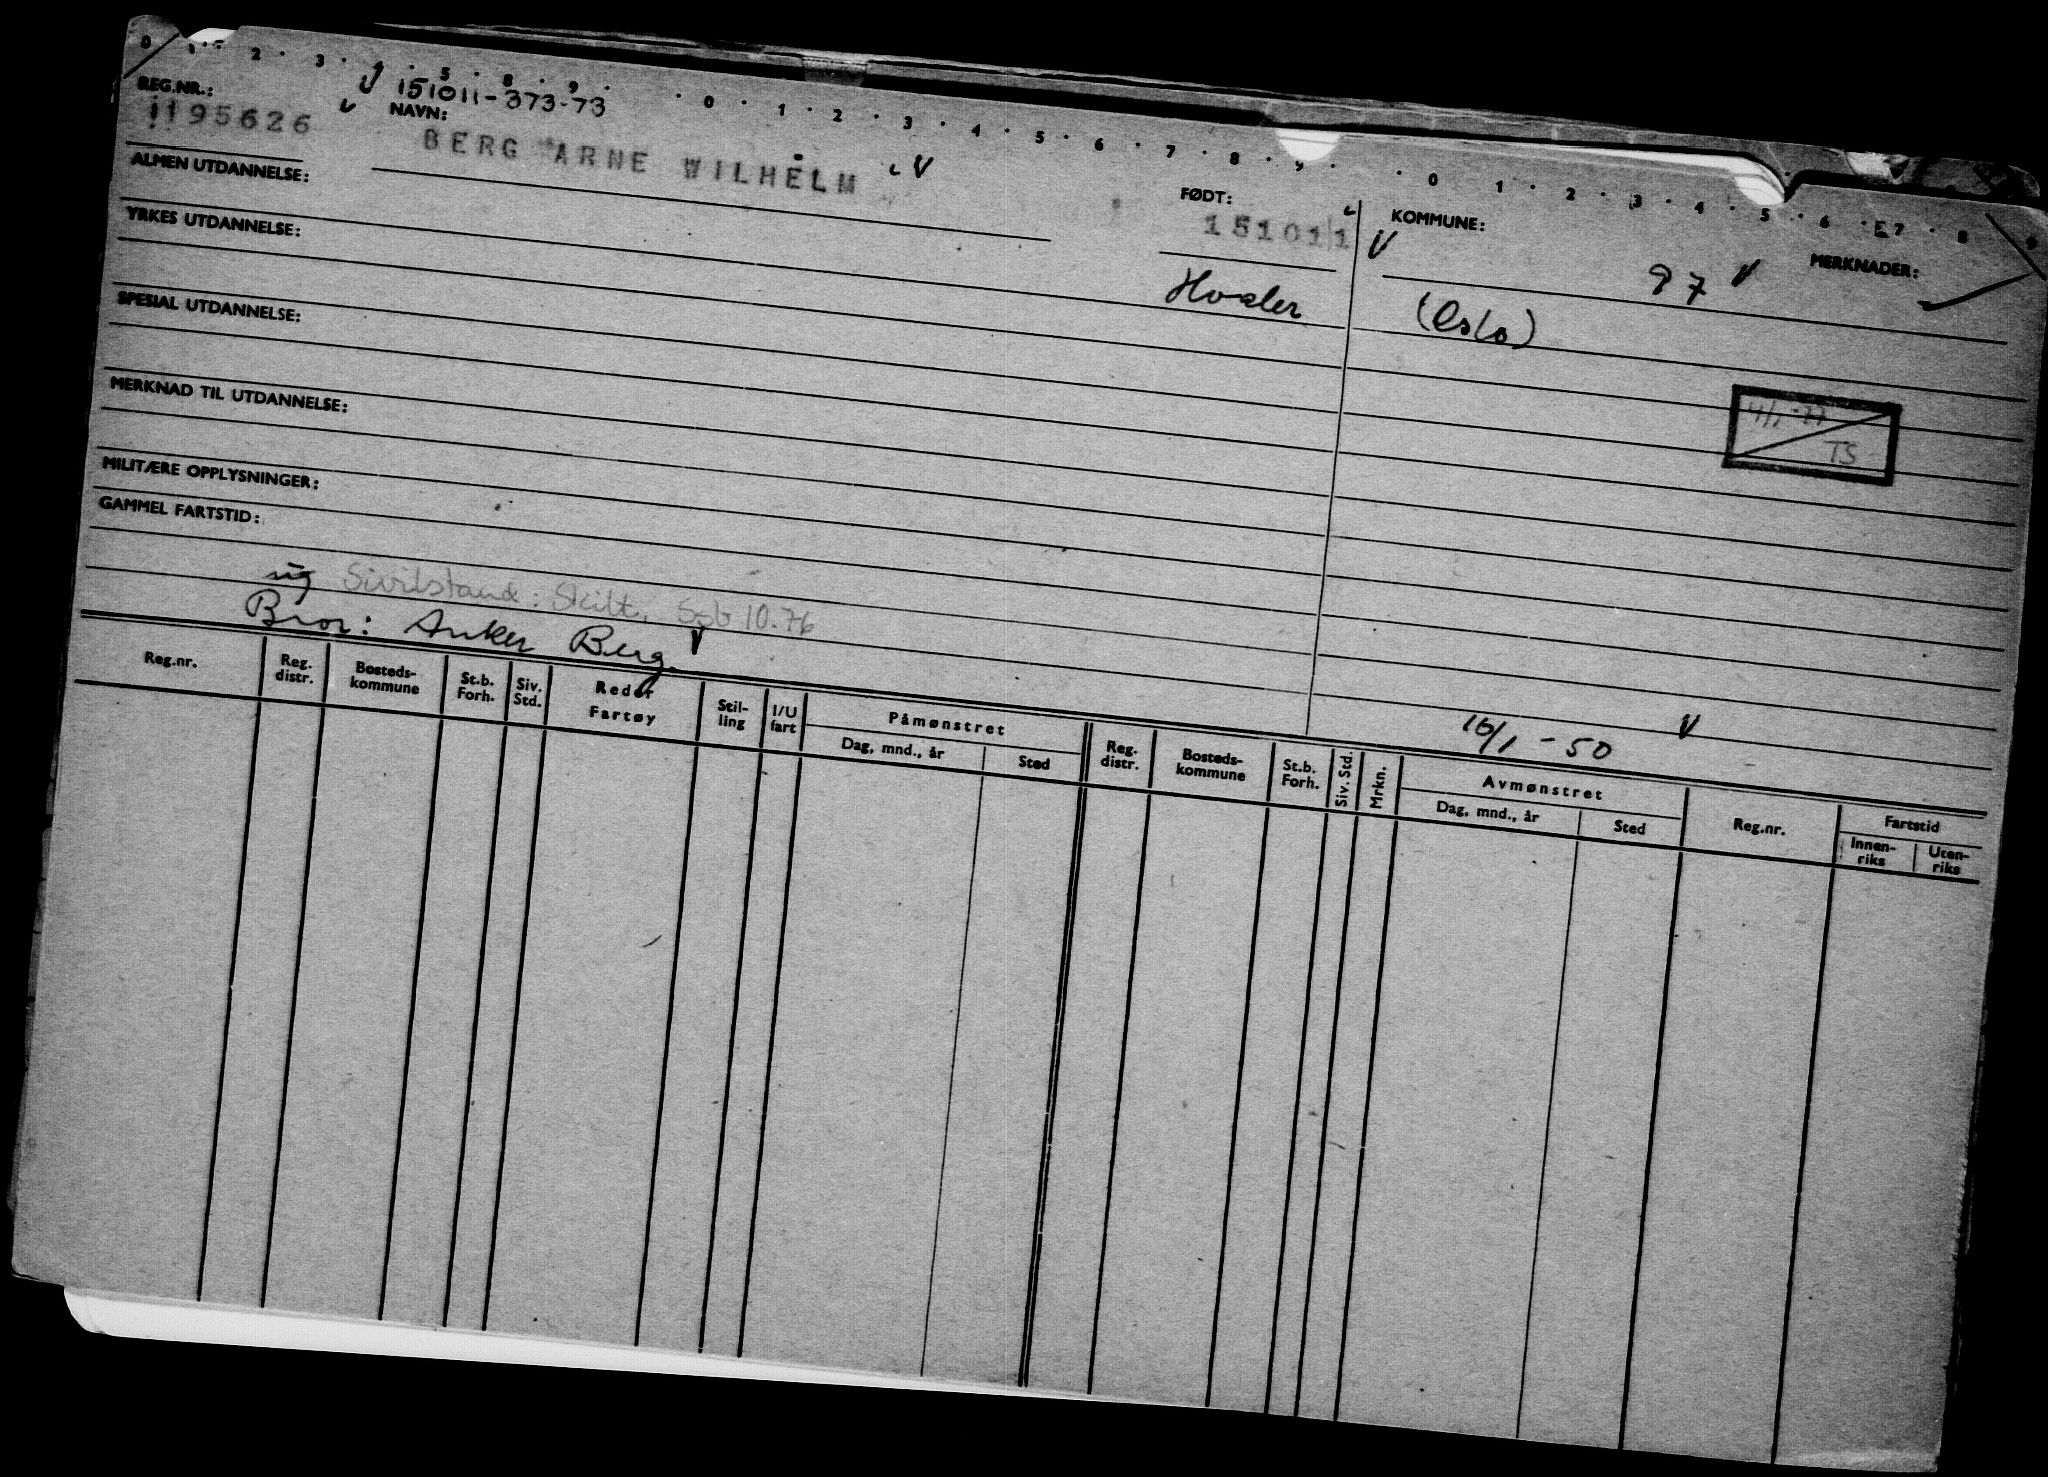 0 1 2 3 4 5 8 9 0 1 2 3 4 5 6 7 8 9 0 1 2 3 4 5 6 7 8 9
REG.NR.: 151011-373-73
1195626 NAVN: BERG ARNE WILHELM
FØDT: 151011 KOMMUNE: 97 MERKNADER:
ALMEN UTDANNELSE:
Hvaler (Oslo)
YRKES UTDANNELSE:
SPESIAL UTDANNELSE:
4/1-77
TS
MERKNAD TIL UTDANNELSE:
MILITÆRE OPPLYSNINGER:
GAMMEL FARTSTID:
ug Sivilstand: Skilt. 10.76
Bror: Anker Berg.
16/1-50
Reg.nr. Reg. distr. Bosteds-kommune St.b. Forh. Siv. Std. Reder Fartøy Stil-ling I/U fart Påmønstret Dag, mnd., år Sted Reg. distr. Bosteds-kommune St.b. Forh. Siv. Std. Mrkn. Avmønstret Dag, mnd., år Sted Reg.nr. Fartstid Innen-riks Uten-riks